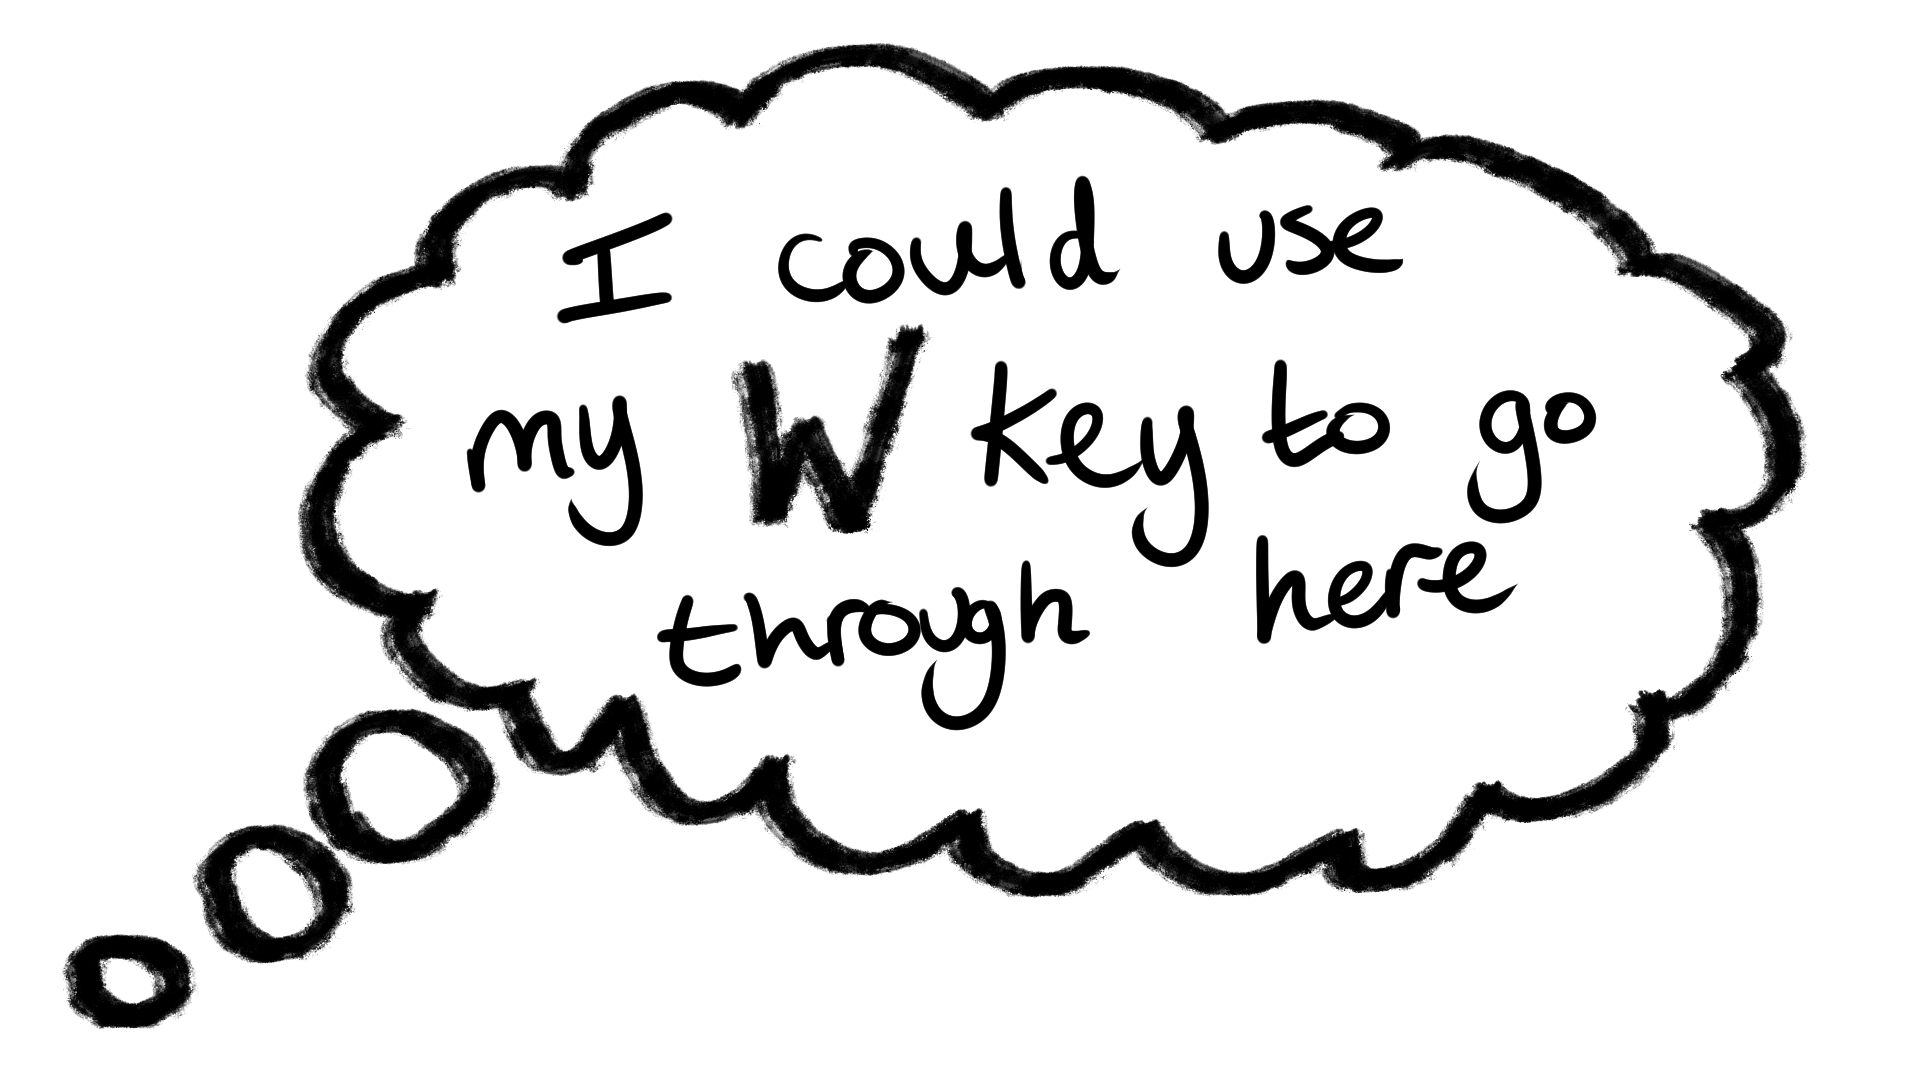 I could use
my W key to go
through here